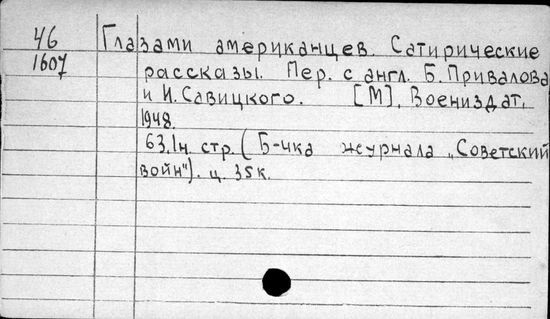 46 Глазами американцев. Сатирические
1607 рассказы. Пер. с англ. Б. Привалова
и И. Савицкого. [М], Воениздат,
1948.
63, 1н. стр. (Б-чка журнала „Советский
войн"). ц. 35к.